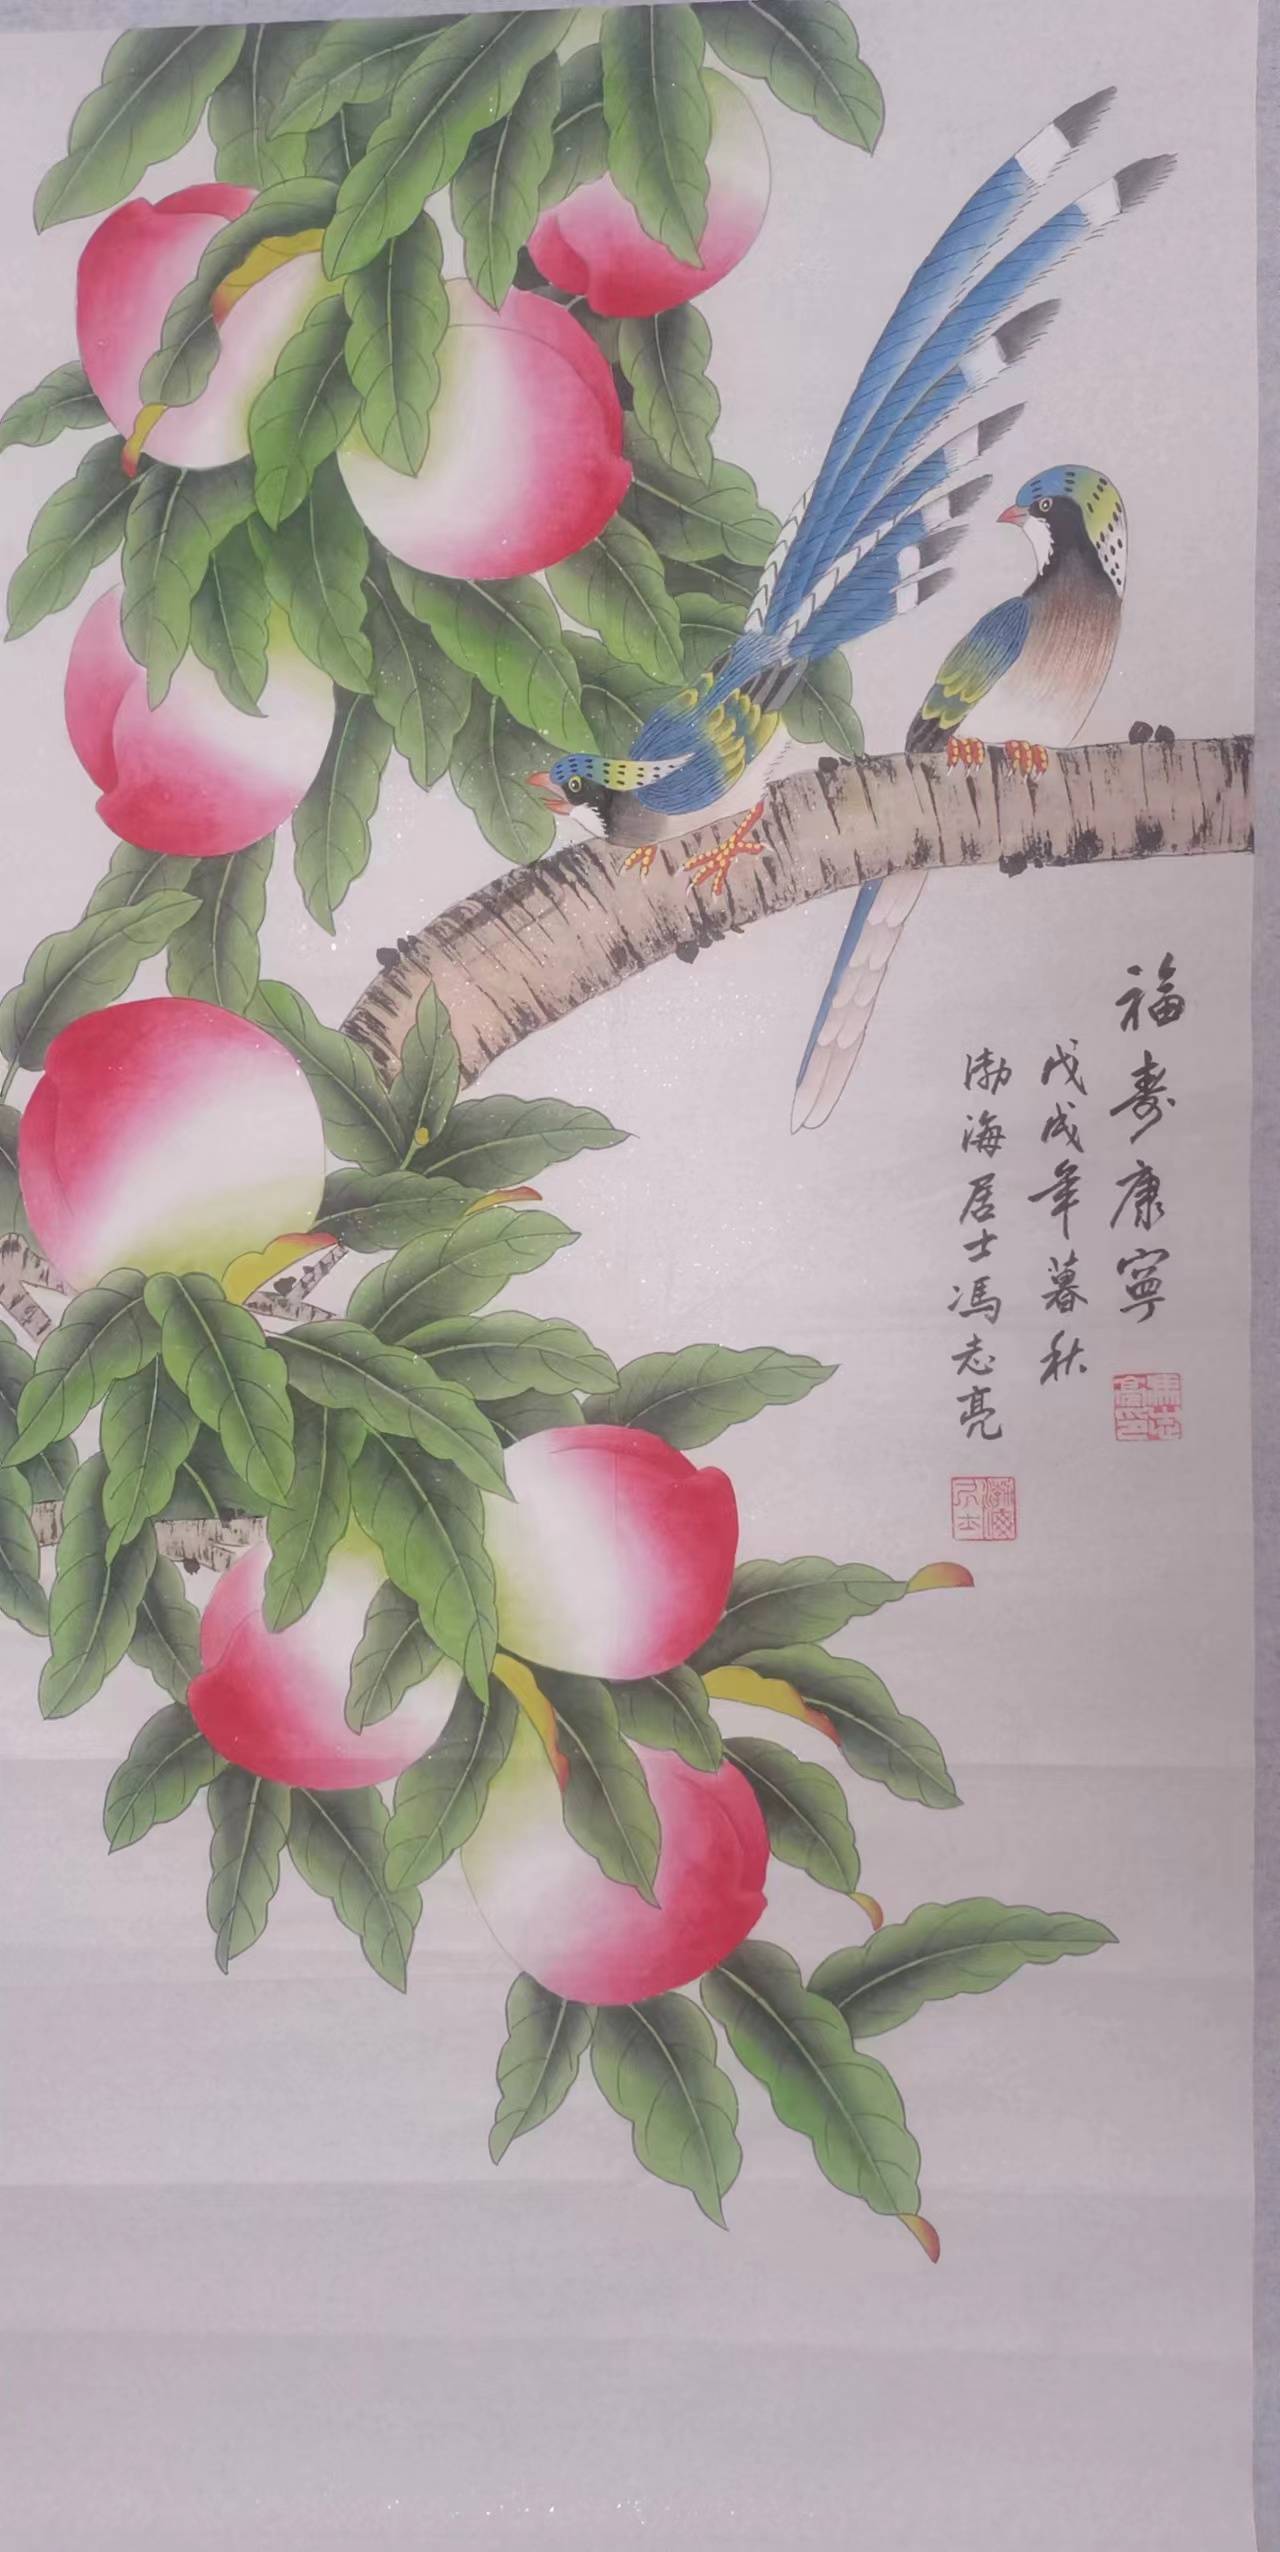 福寿康宁
戊戌年暮秋
渤海居士冯志亮